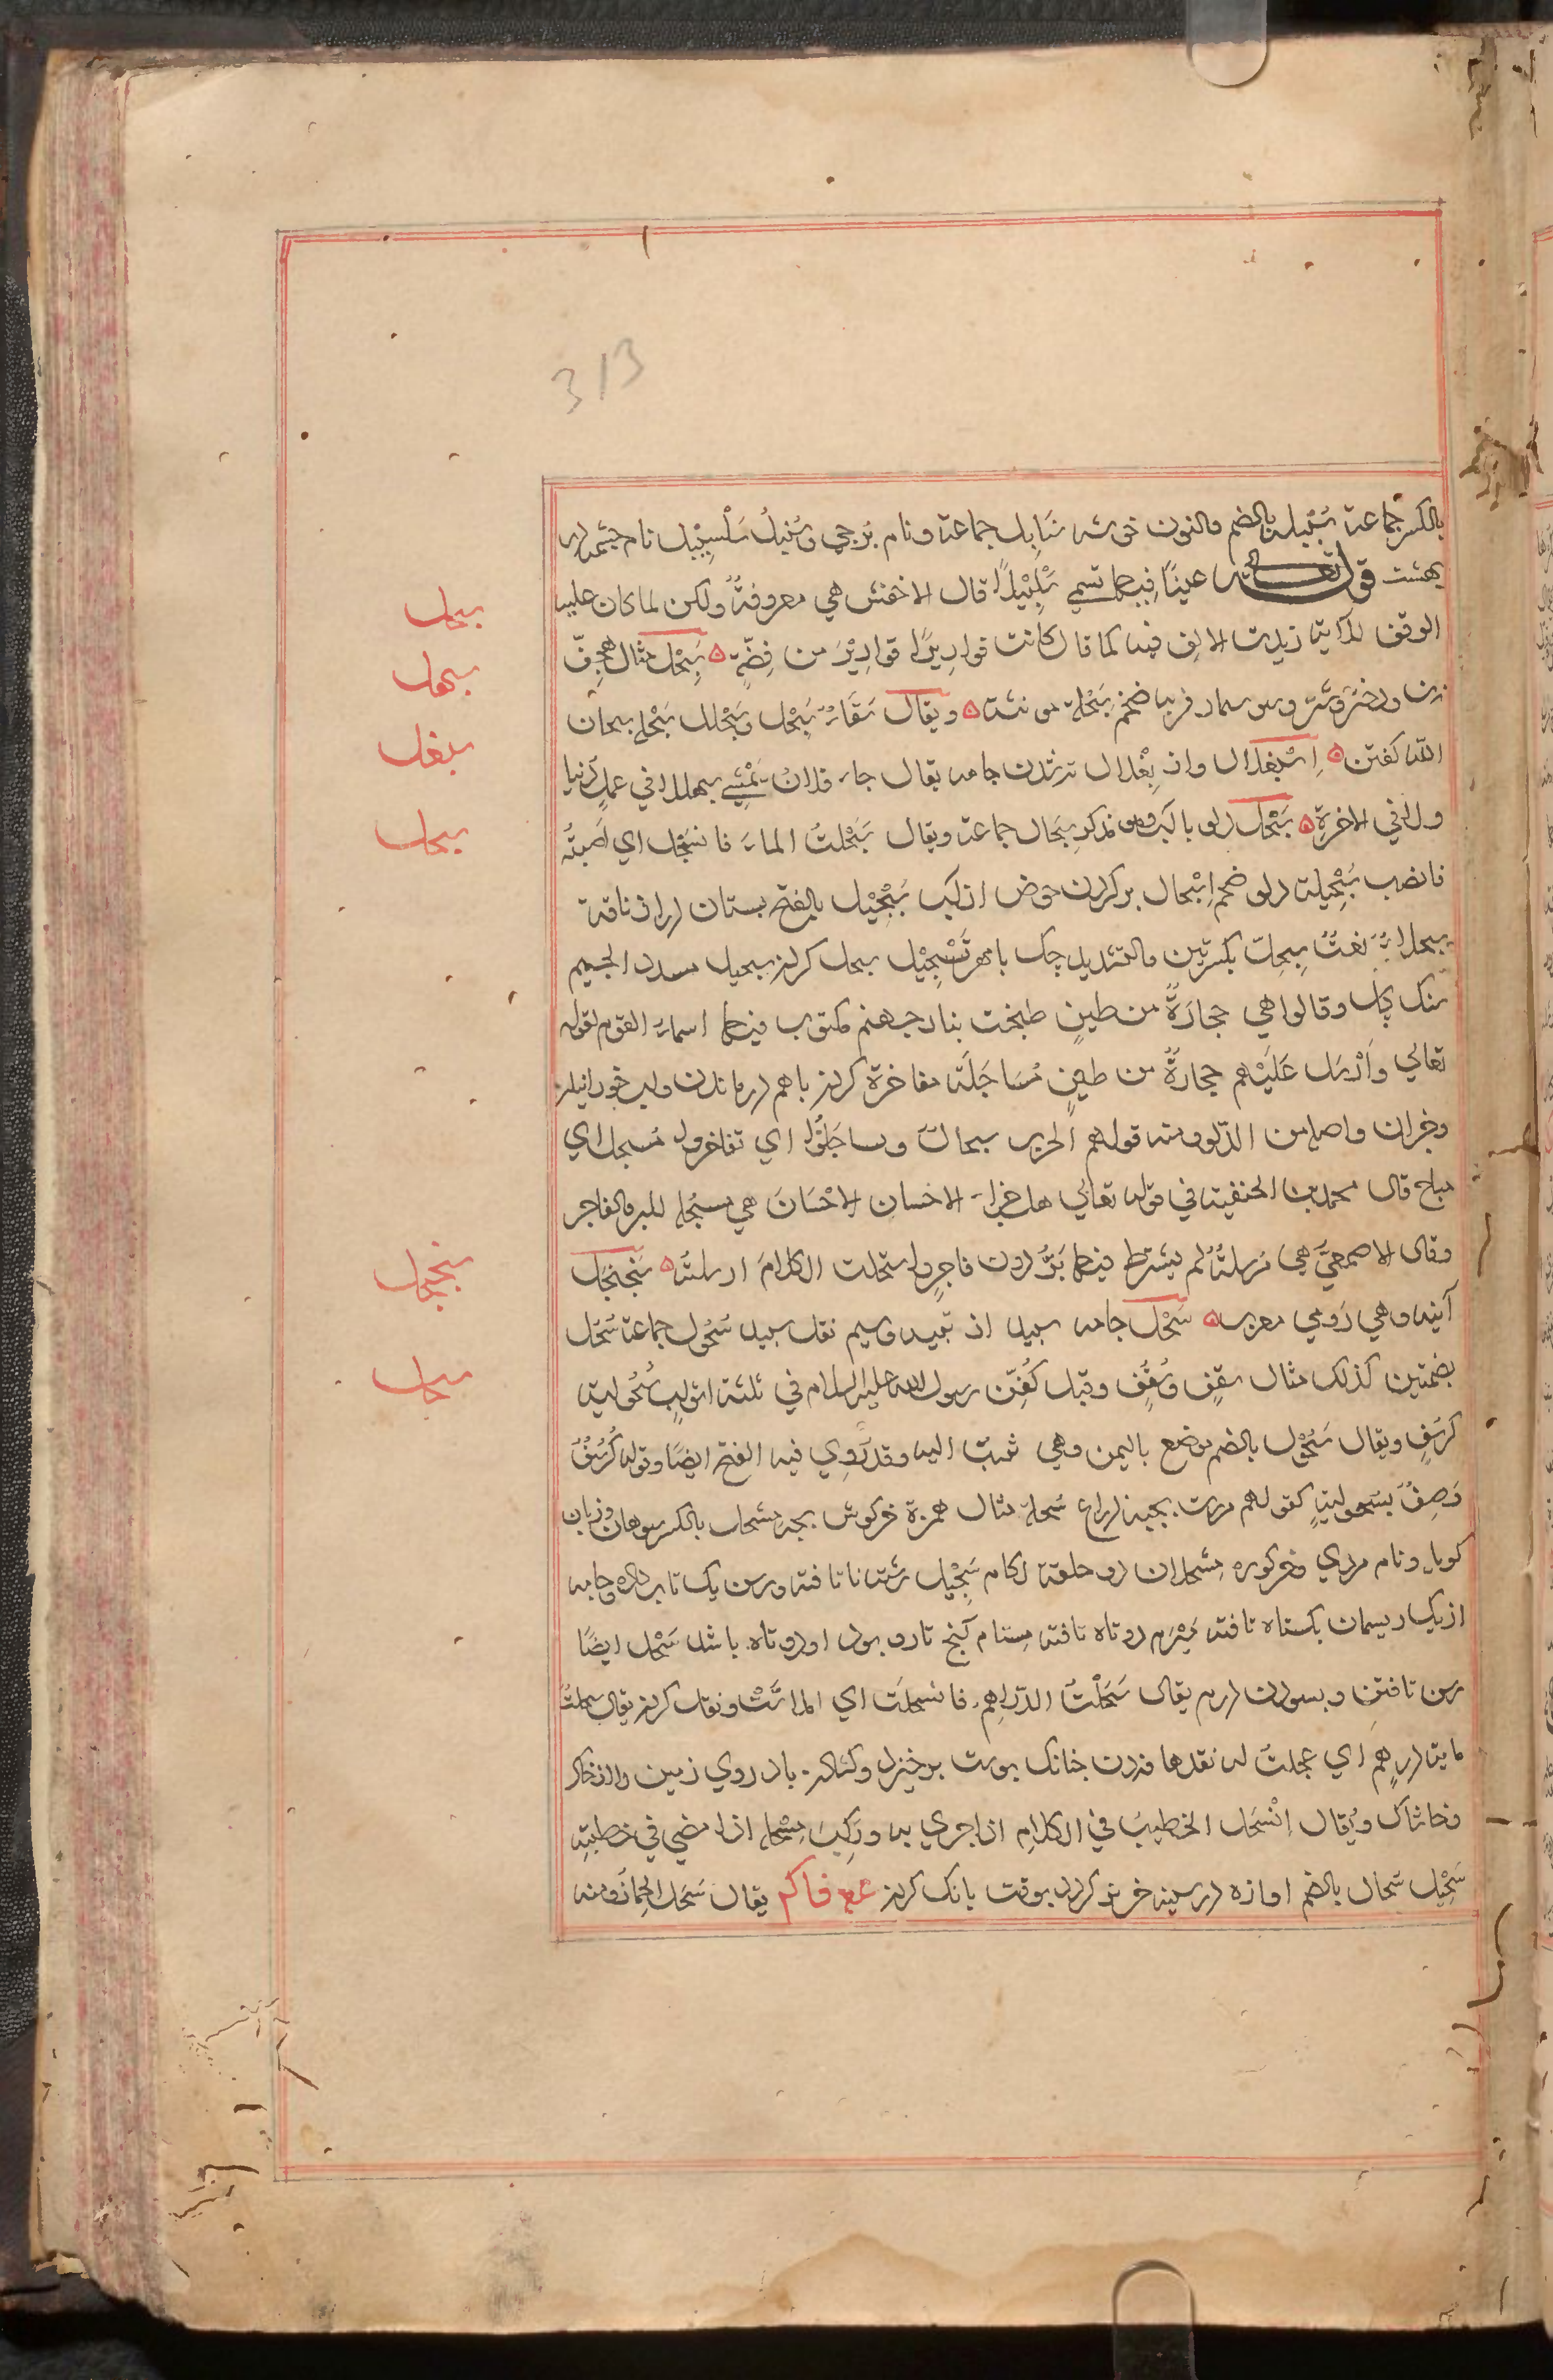 313
بالكسر جماعة سُنْبُلة بالضم والنون خوشه سَنَابِل جماعة ونام برجي وسُنْبُل سَلْسَبِيْل نام چشمه در
بهشت قوله تعالى عينًا فيها تسمى سَلْسَبِيْلًا قال الاخفش هي معروفةٌ ولكن لما كان عليه
الوقف للآية زيدت الالف فيه كما قال كانت قوارِيرًا قوارِيْرَ من فِضّةٍ سَبَحْل مثال هِجَفّ
ويقال سِقَاءٌ سِبَحْل وسَبَحْلَل سَبْحَلَ سبحان
الله گفتن اِسْبِغْلَال واز بِغْلال تر شدن جامه يقال جاء فلانٌ يَمْشِي سبهللا في عمل دنيا
ولا في الاخرة سَجْل دلو با آب وهو مذكر سِجَال جماعة ويقال سَجَلْتُ الماءَ فانسَجَل اي صببتُه
فانصب سَجِيْلة دلو ضخم اِسْجَال پر كردن حوض از آب سَجِيْل بالفتح پستان دراز ناقة
سجلاءُ نعتٌ سِجِلّ بكسرتين والتشديد چك با مهر تَسْجِيْل سجل كردن سجيل مسدد الجيم
سنگ گل وقالوا هي حجارَةٌ من طينٍ طبخت بنار جهنم مكتوب فيها اسماء القوم لقوله
تعالي وَاَرْسَل عَلَيْهم حجارةً من طين مُسَاجَلَة مفاخرة كردن باهم در ماندن واب خورانيدن
وجزان واصله من الدّلو ومنه قولهم الحرب سجالٌ وتساجَلُوا اي تفاخروا مُسجل اي
مباح قال محمد بن الحنفية في قوله تعالي هل جزاء الاحسان الا الاحْسَان هي مسجَلة للبر والفاجر
وقال الاصمعيّ هي مُرسلةٌ لم يشترط فيها بَرٌّ دون فاجرٍ واسجلت الكلامَ ارسلته سَجَنْجَل
آينه وهي رومي معرب سَحْل جامه سپيد از پنبه وسيم نقد سپيد سُحُول جماعة سُحُل
بضمتين كذلك مثال سقفٍ وسُقُفٍ وقيل كُفِّن رسول الله عليه السلام في ثلثة اثوابٍ سُحُولية
كرسُفٍ ويقال سَحُوْل بالضم موضع باليمن وهي تُنسبُ اليه وقد رُوِي فيه الفتح ايضًا وقوله كُرْسُفٌ
وَصِفٌ بسحوليّةٍ كقولهم مررت بحية ذراع سُحلة مثال همزة خرگوش بچه مِسْحَل بالكسر سوهان وزبان
گويا ونام مردي وخر گوره مِسْحلان دو حلقه لگام سَحِيْل رشته ناتافته ورسن يك تا بداده وجامه
از يك ريسمان يكتاه تافته مُبْرَم دوتاه تافته مِتآم آنچ تار وپود او دوتاه باشد سَحْل ايضًا
رسن تافتن وبسودن درم يقال سَحَلْتُ الدّراهِم فانسحلَت اي املاسَّتْ ونقد كردن يقال سحلتُه
مايتا درهم اي عجلتُ له نقدها وزدن چنانك پوست برخيزد وكندن باد روي زمين را از خاك
وخاشاك ويُقال اِنْسَحَل الخطيبُ في الكلامِ اذا جري به ورَكِبَ مِسْحله اذا مضي في خطبتهِ
سَحِيْل سُحَال بالضم اوازه در سينه خر نو كردد بوقت بانك كردن ع ف ا ك م يقال سَحَل الحِمارُ ومنه
سبحل
سبهل
سبغل
سجل
سجنجل
سحل